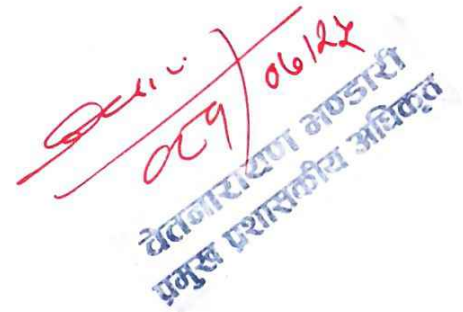 ०८१/०६/२४
चेतनारायण भण्डारी
प्रमुख प्रशासकीय अधिकृत